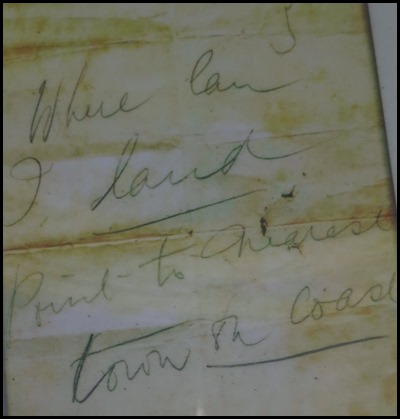 5
Where Can
I land
Point to nearest
town on Coast